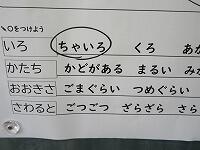 ○をつけよう
いろ ちゃいろ くろ あか
かたち かどがある まるい
おおきさ ごまぐらい つめぐらい
さわると ごつごつ ざらざら さら